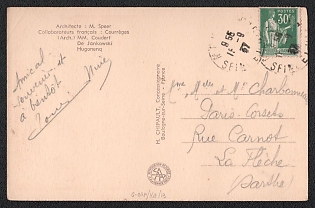 Architecte : M. Speer
Collaborateurs français : Courrèges
(Arch.) MM. Coudert
De Jankowski
Hugonenq
Amical
souvenir et
à bientôt
H. CHIPAULT, Concessionnaire
Boulogne-sur-Seine
30c
Mme Melle et Mr Charbonneau
Paris-Corsets
Rue Carnot
La Flèche
(Sarthe)